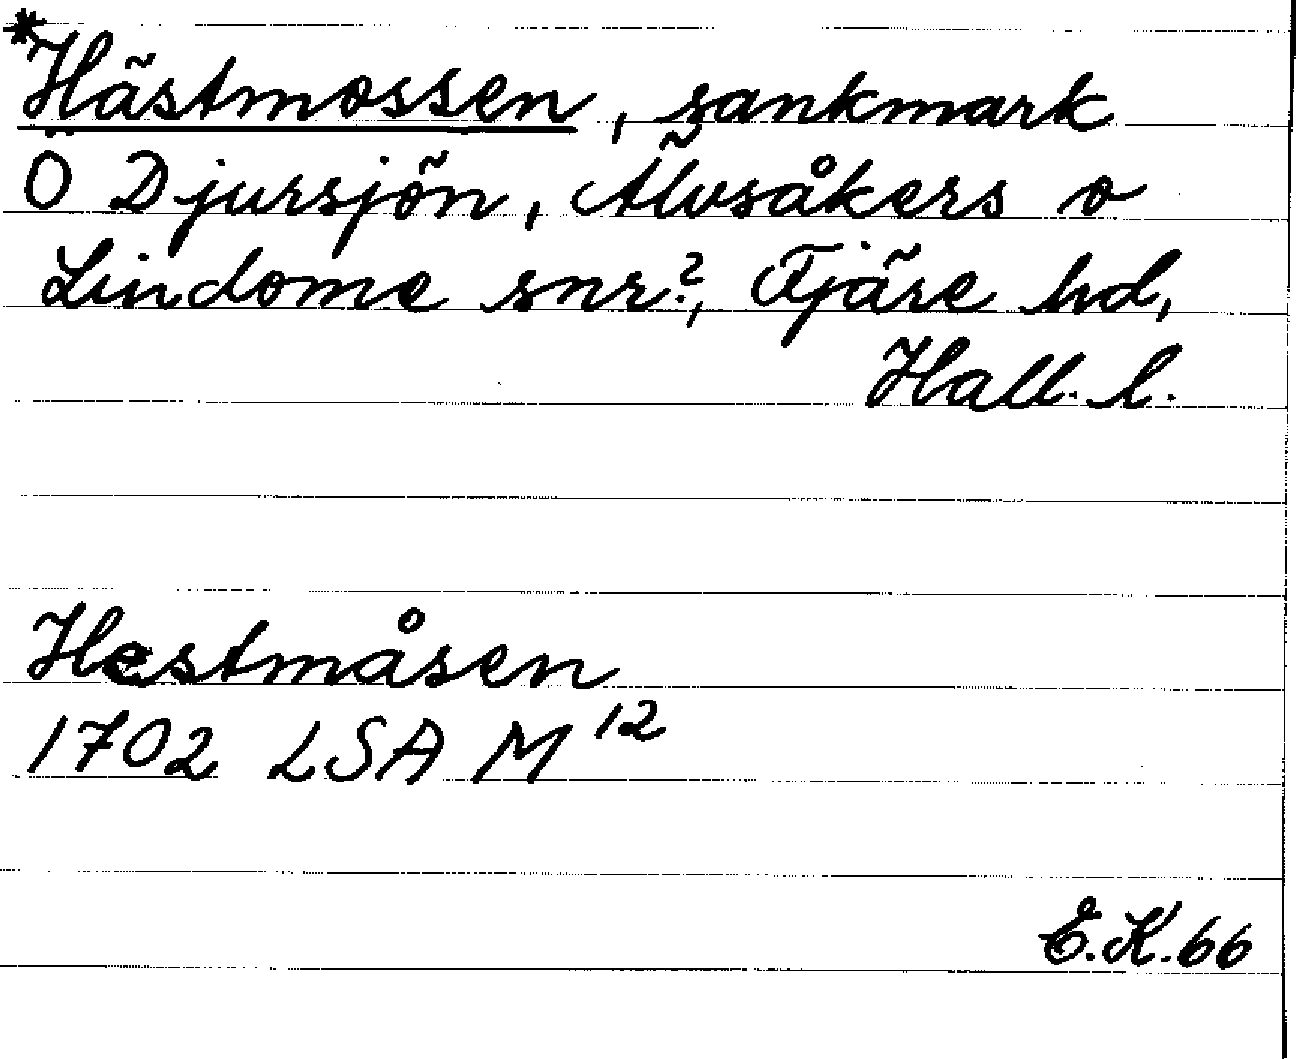 *Hästmossen, sankmark
Ö Djursjön, Älvsåkers o
Lindome snr?, Fjäre hd,
Hall. l.
Hestmåsen
1702 LSA M 12
E.K. 66